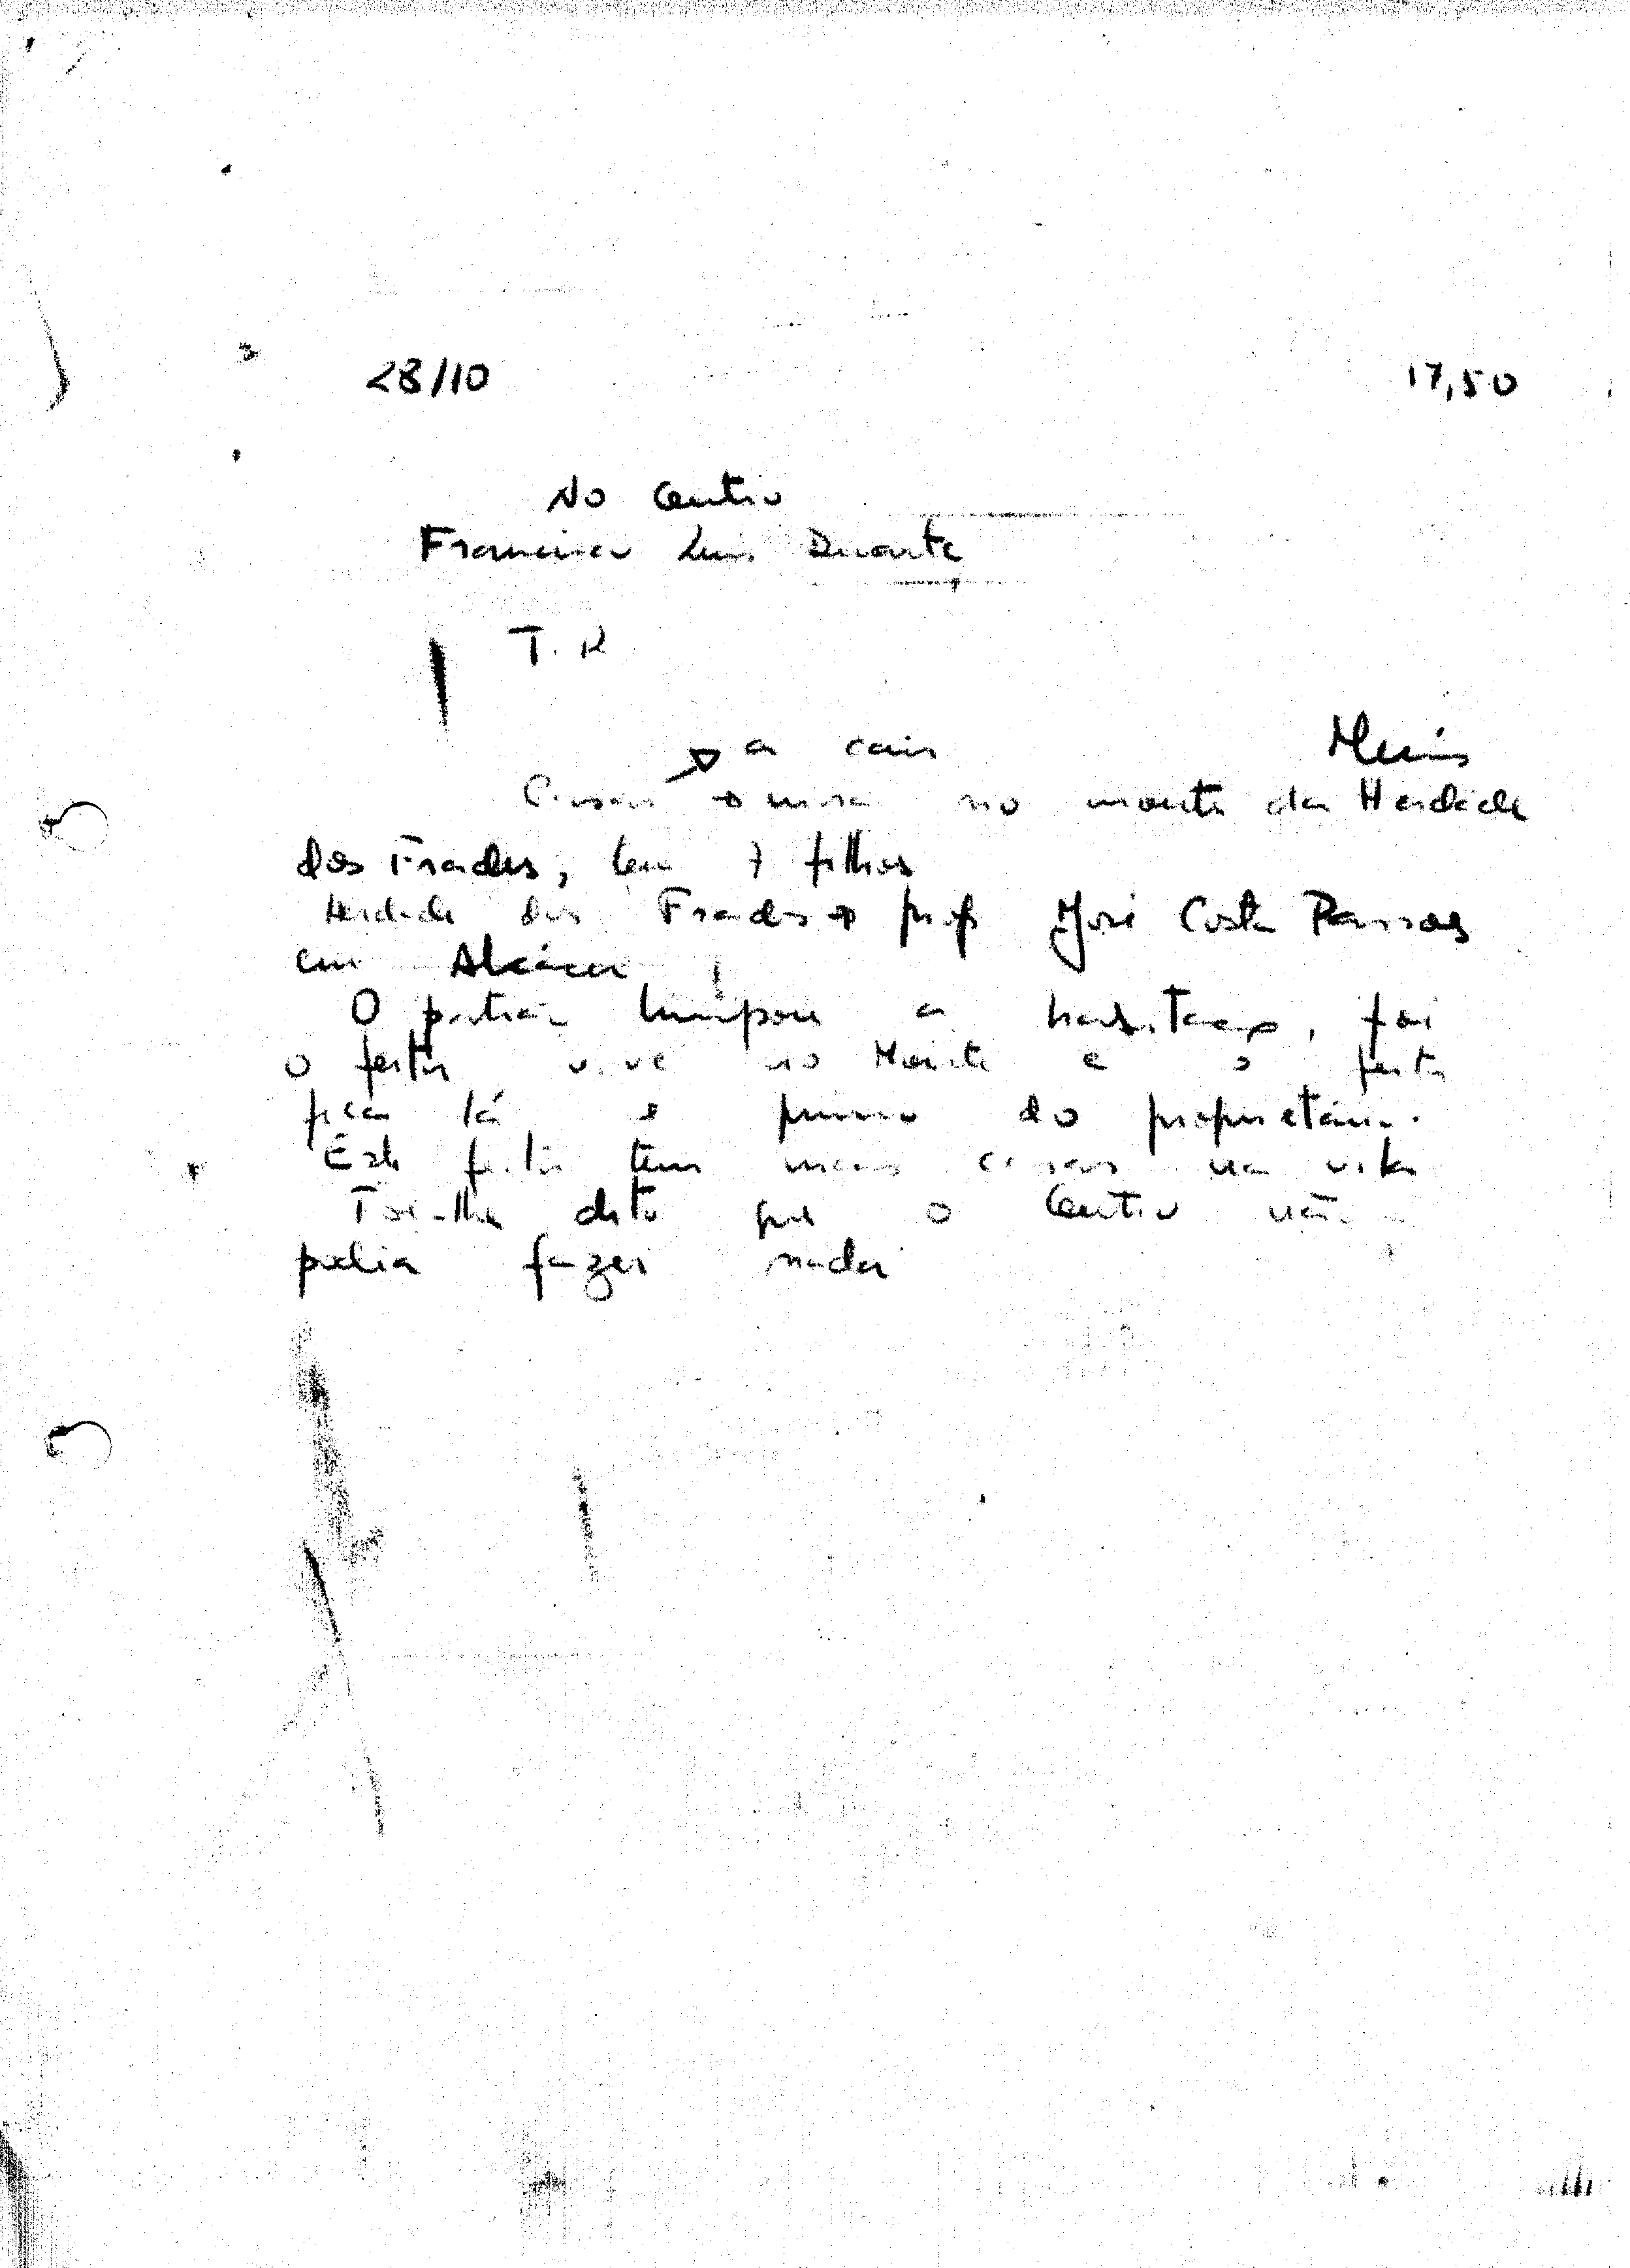 28/10 17,50
No Centro
Francisco Luis Duarte
T. R
a cair
Casas → mora no monte da Herdade
dos Frades, tem 7 filhos
Herdade dos Frades → prop José Costa Passos
em Alcácer
O patrão limpou a habitação, foi
o feitor vive no Monte e o feitor
fica lá e primo do proprietário.
Este feitor tem mais casas na vila
Foi-lhe dito que o Centro não
podia fazer nada